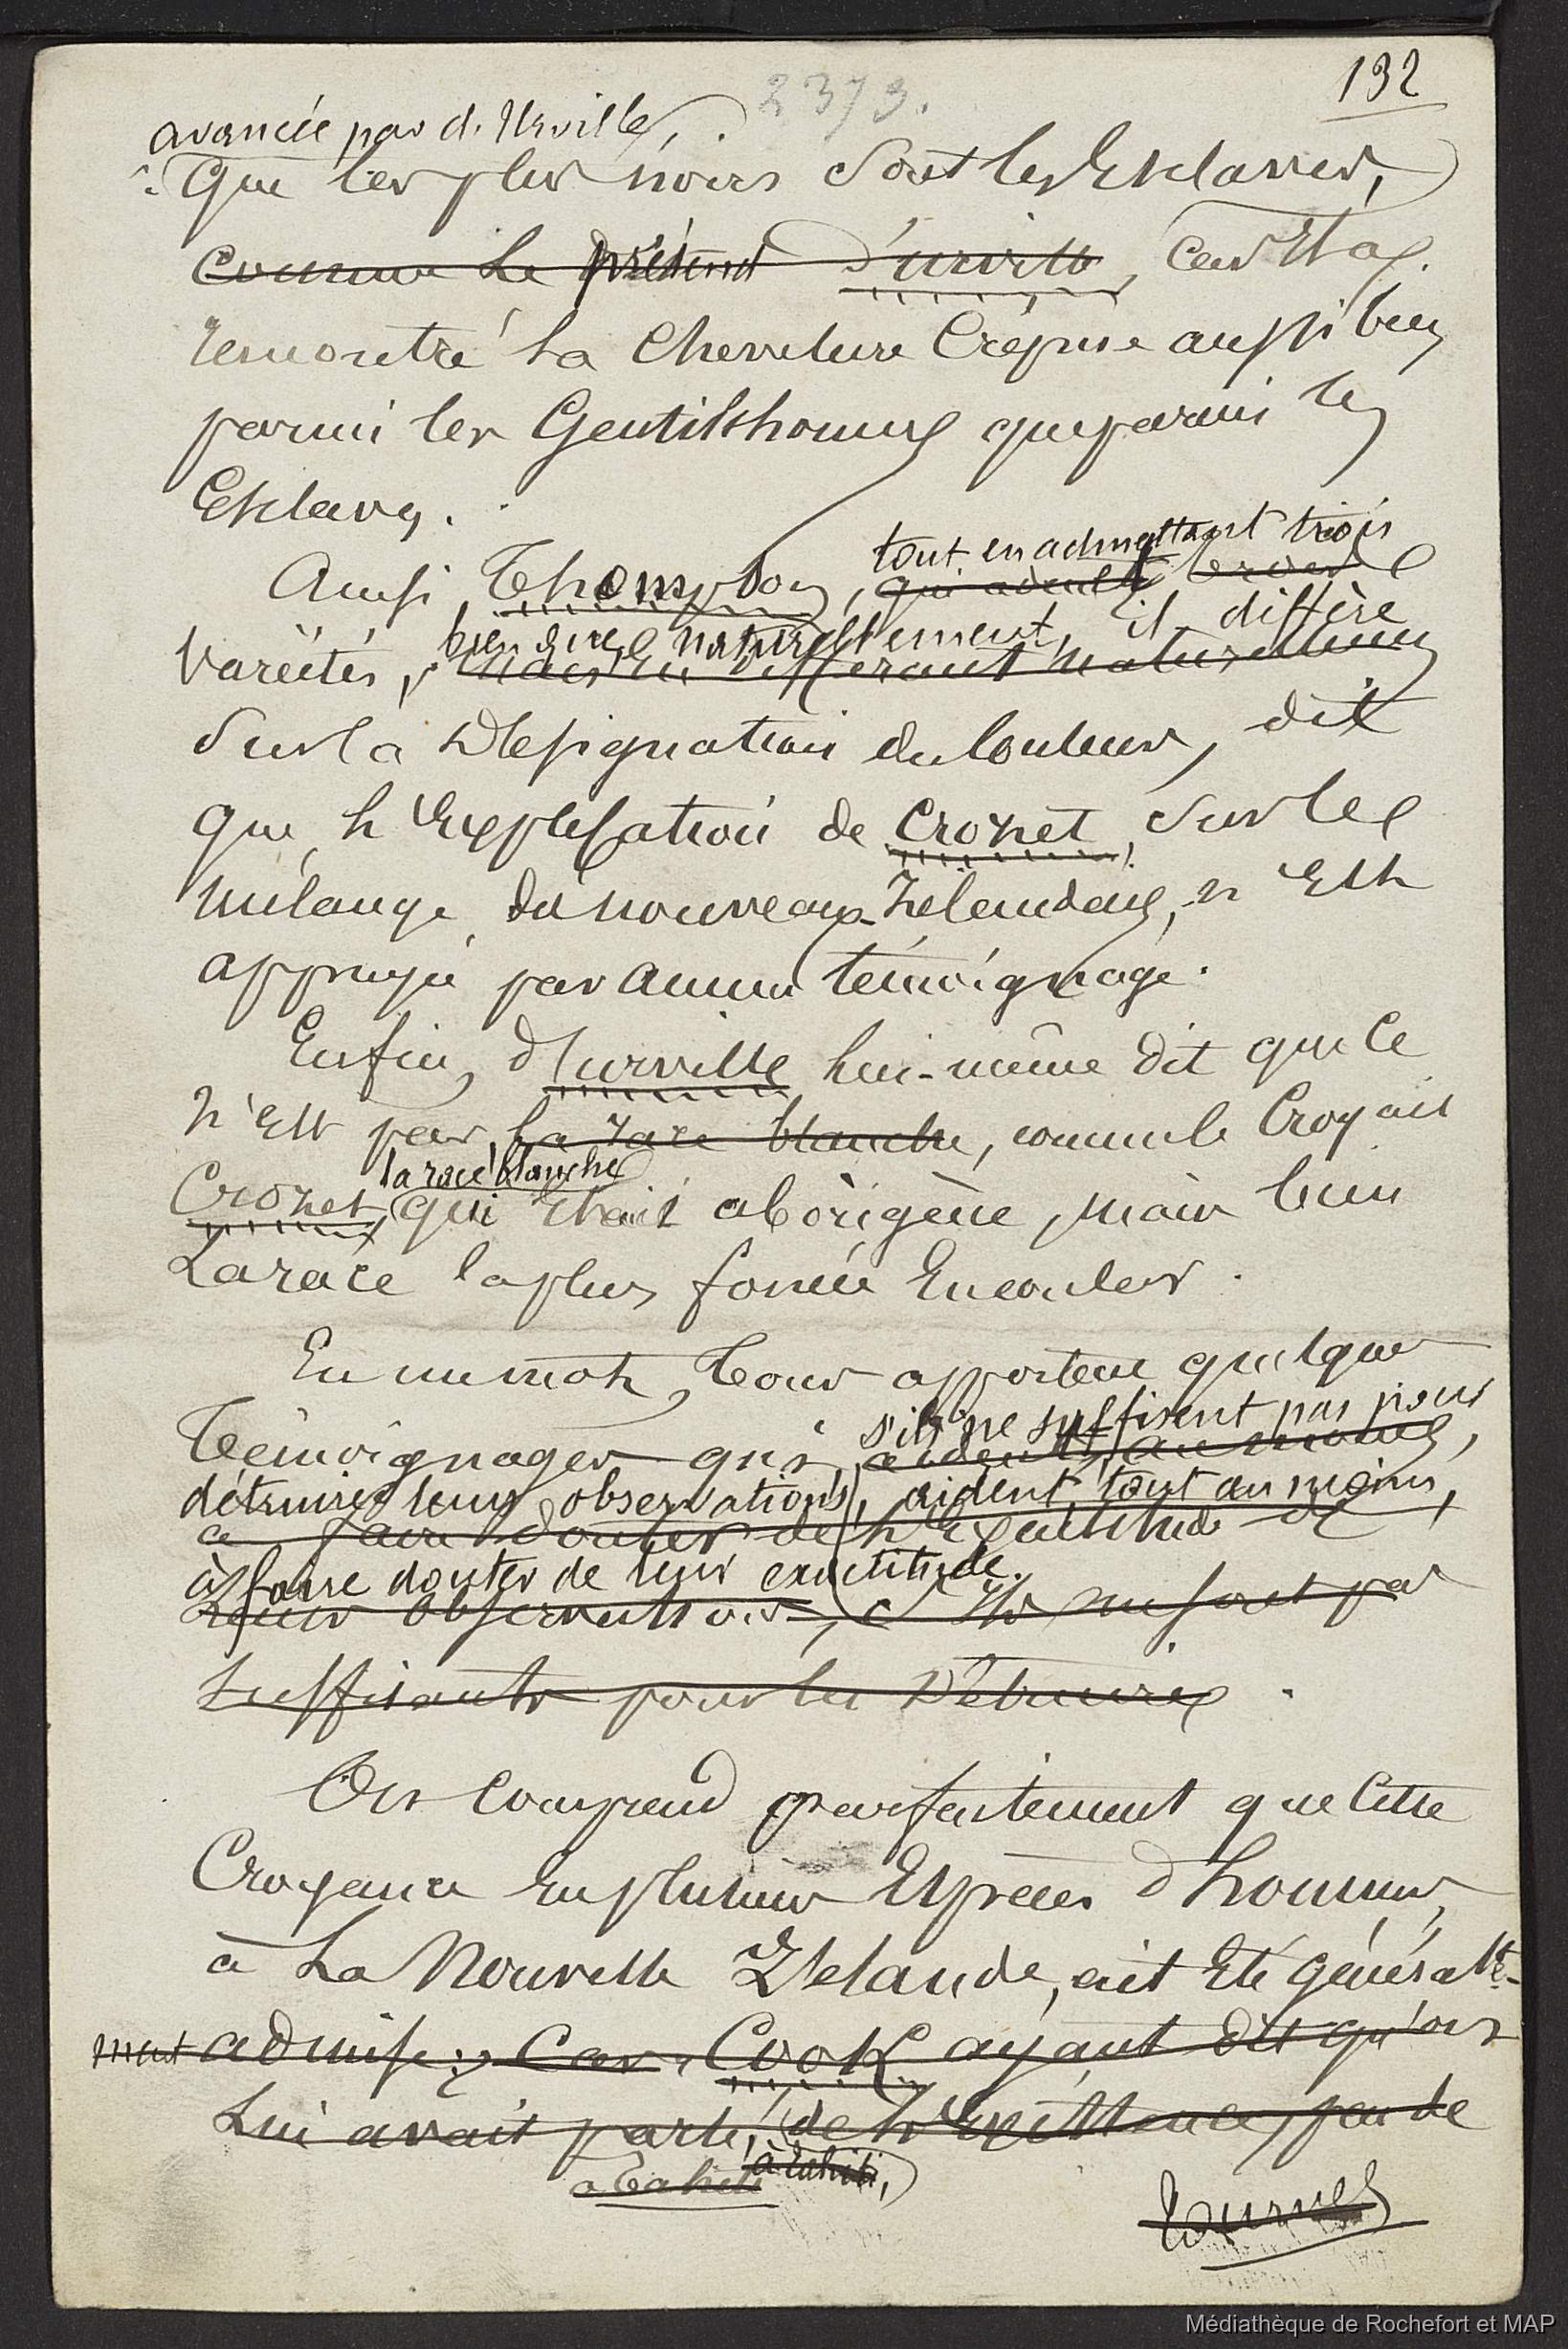 132
2373.
avancée par d'Urville,
que les plus noirs sont les Esclaves,
comme le prétend d'urville, car il a
rencontré la chevelure crépue aussi bien
parmi les Gentilshommes que parmi les
Esclaves.
tout en admettant trois
Ainsi, Thompson, qui admet trois
bien que naturellement, il diffère
variétés, mais en différant naturellement
sur la désignation du couleur, dit
que l'Explication de Crozet, sur le
mélange des nouveaux-Zélandais, n'est
appuyée par aucun témoignage.
Enfin, d'urville lui-même dit que ce
n'est pas la race blanche, comme le croyait
la race blanche
Crozet, qui était aborigène, mais bien
La race la plus foncée en couleur.
En un mot, tous apportent quelques
s'ils ne suffisent pas pour
témoignages qui, aident, au moins,
détruire leurs observations, aident, tout au moins,
à faire douter de l'Exactitude de
à faire douter de leur exactitude.
Leurs observations, s'ils ne sont pas
suffisants pour les détruire.
On comprend parfaitement que cette
Croyance en plusieurs Espèces d'hommes,
à La Nouvelle Zélande, ait été générale-
ment admise; Car, Cook ayant dit qu'on
Lui avait parlé, de l'Existence, peu de
à Tahiti,
à Tahiti
Tournez
Médiathèque de Rochefort et MAP